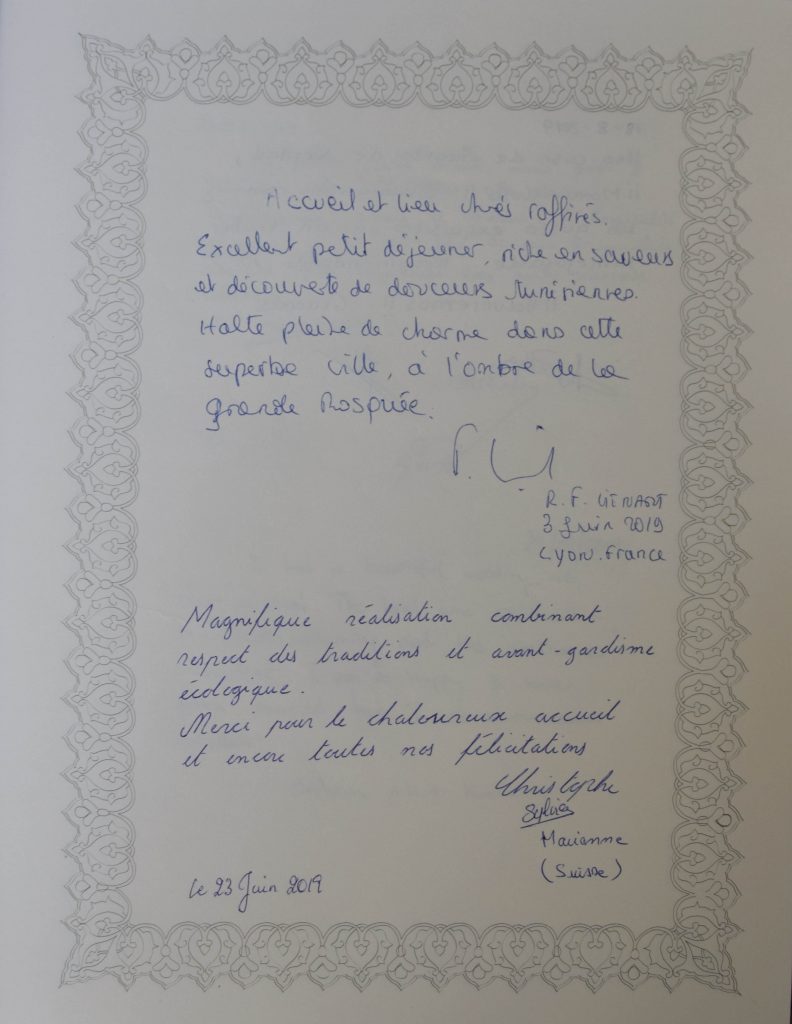 Accueil et lieu très raffinés.
Excellent petit déjeuner, riche en saveurs
et découverte de douceurs tunisiennes.
Halte pleine de charme dans cette
superbe ville, à l'ombre de la
grande Mosquée.
R. F. LIÉNART
3 Juin 2019
Lyon. France
Magnifique réalisation combinant
respect des traditions et avant-gardisme
écologique.
Merci pour le chaleureux accueil
et encore toutes nos félicitations
Christophe
Sylvia
Marianne
(Suisse)
Le 23 Juin 2019